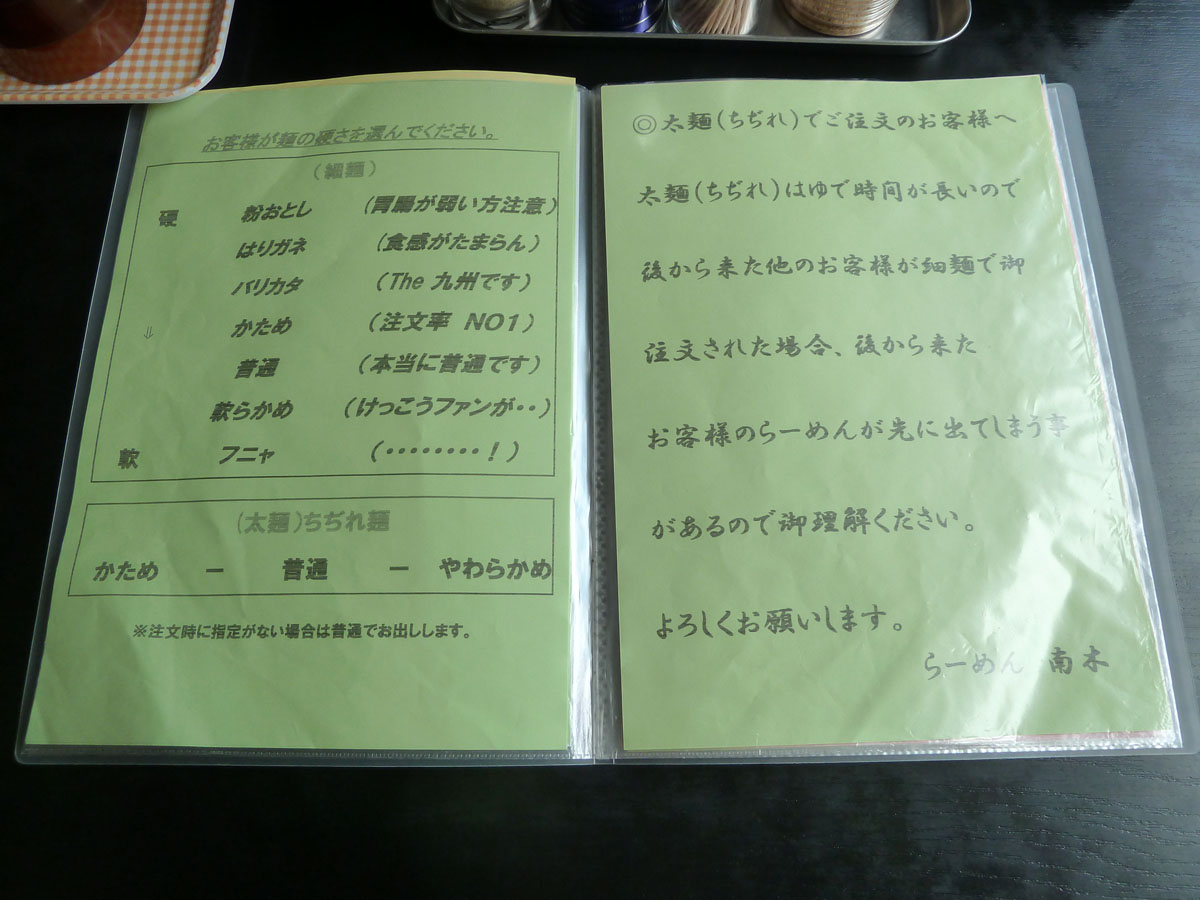 お客様が麺の硬さを選んでください。
（細麺）
硬 粉おとし （胃腸が弱い方注意）
はりガネ （食感がたまらん）
バリカタ （The 九州です）
⇓ かため （注文率 NO1）
普通 （本当に普通です）
軟らかめ （けっこうファンが・・）
軟 フニャ （・・・・・・・・！）
（太麺）ちぢれ麺
かため － 普通 － やわらかめ
※注文時に指定がない場合は普通でお出しします。
◎太麺（ちぢれ）でご注文のお客様へ
太麺（ちぢれ）はゆで時間が長いので
後から来た他のお客様が細麺で御
注文された場合、後から来た
お客様のらーめんが先に出てしまう事
があるので御理解ください。
よろしくお願いします。
らーめん 南木